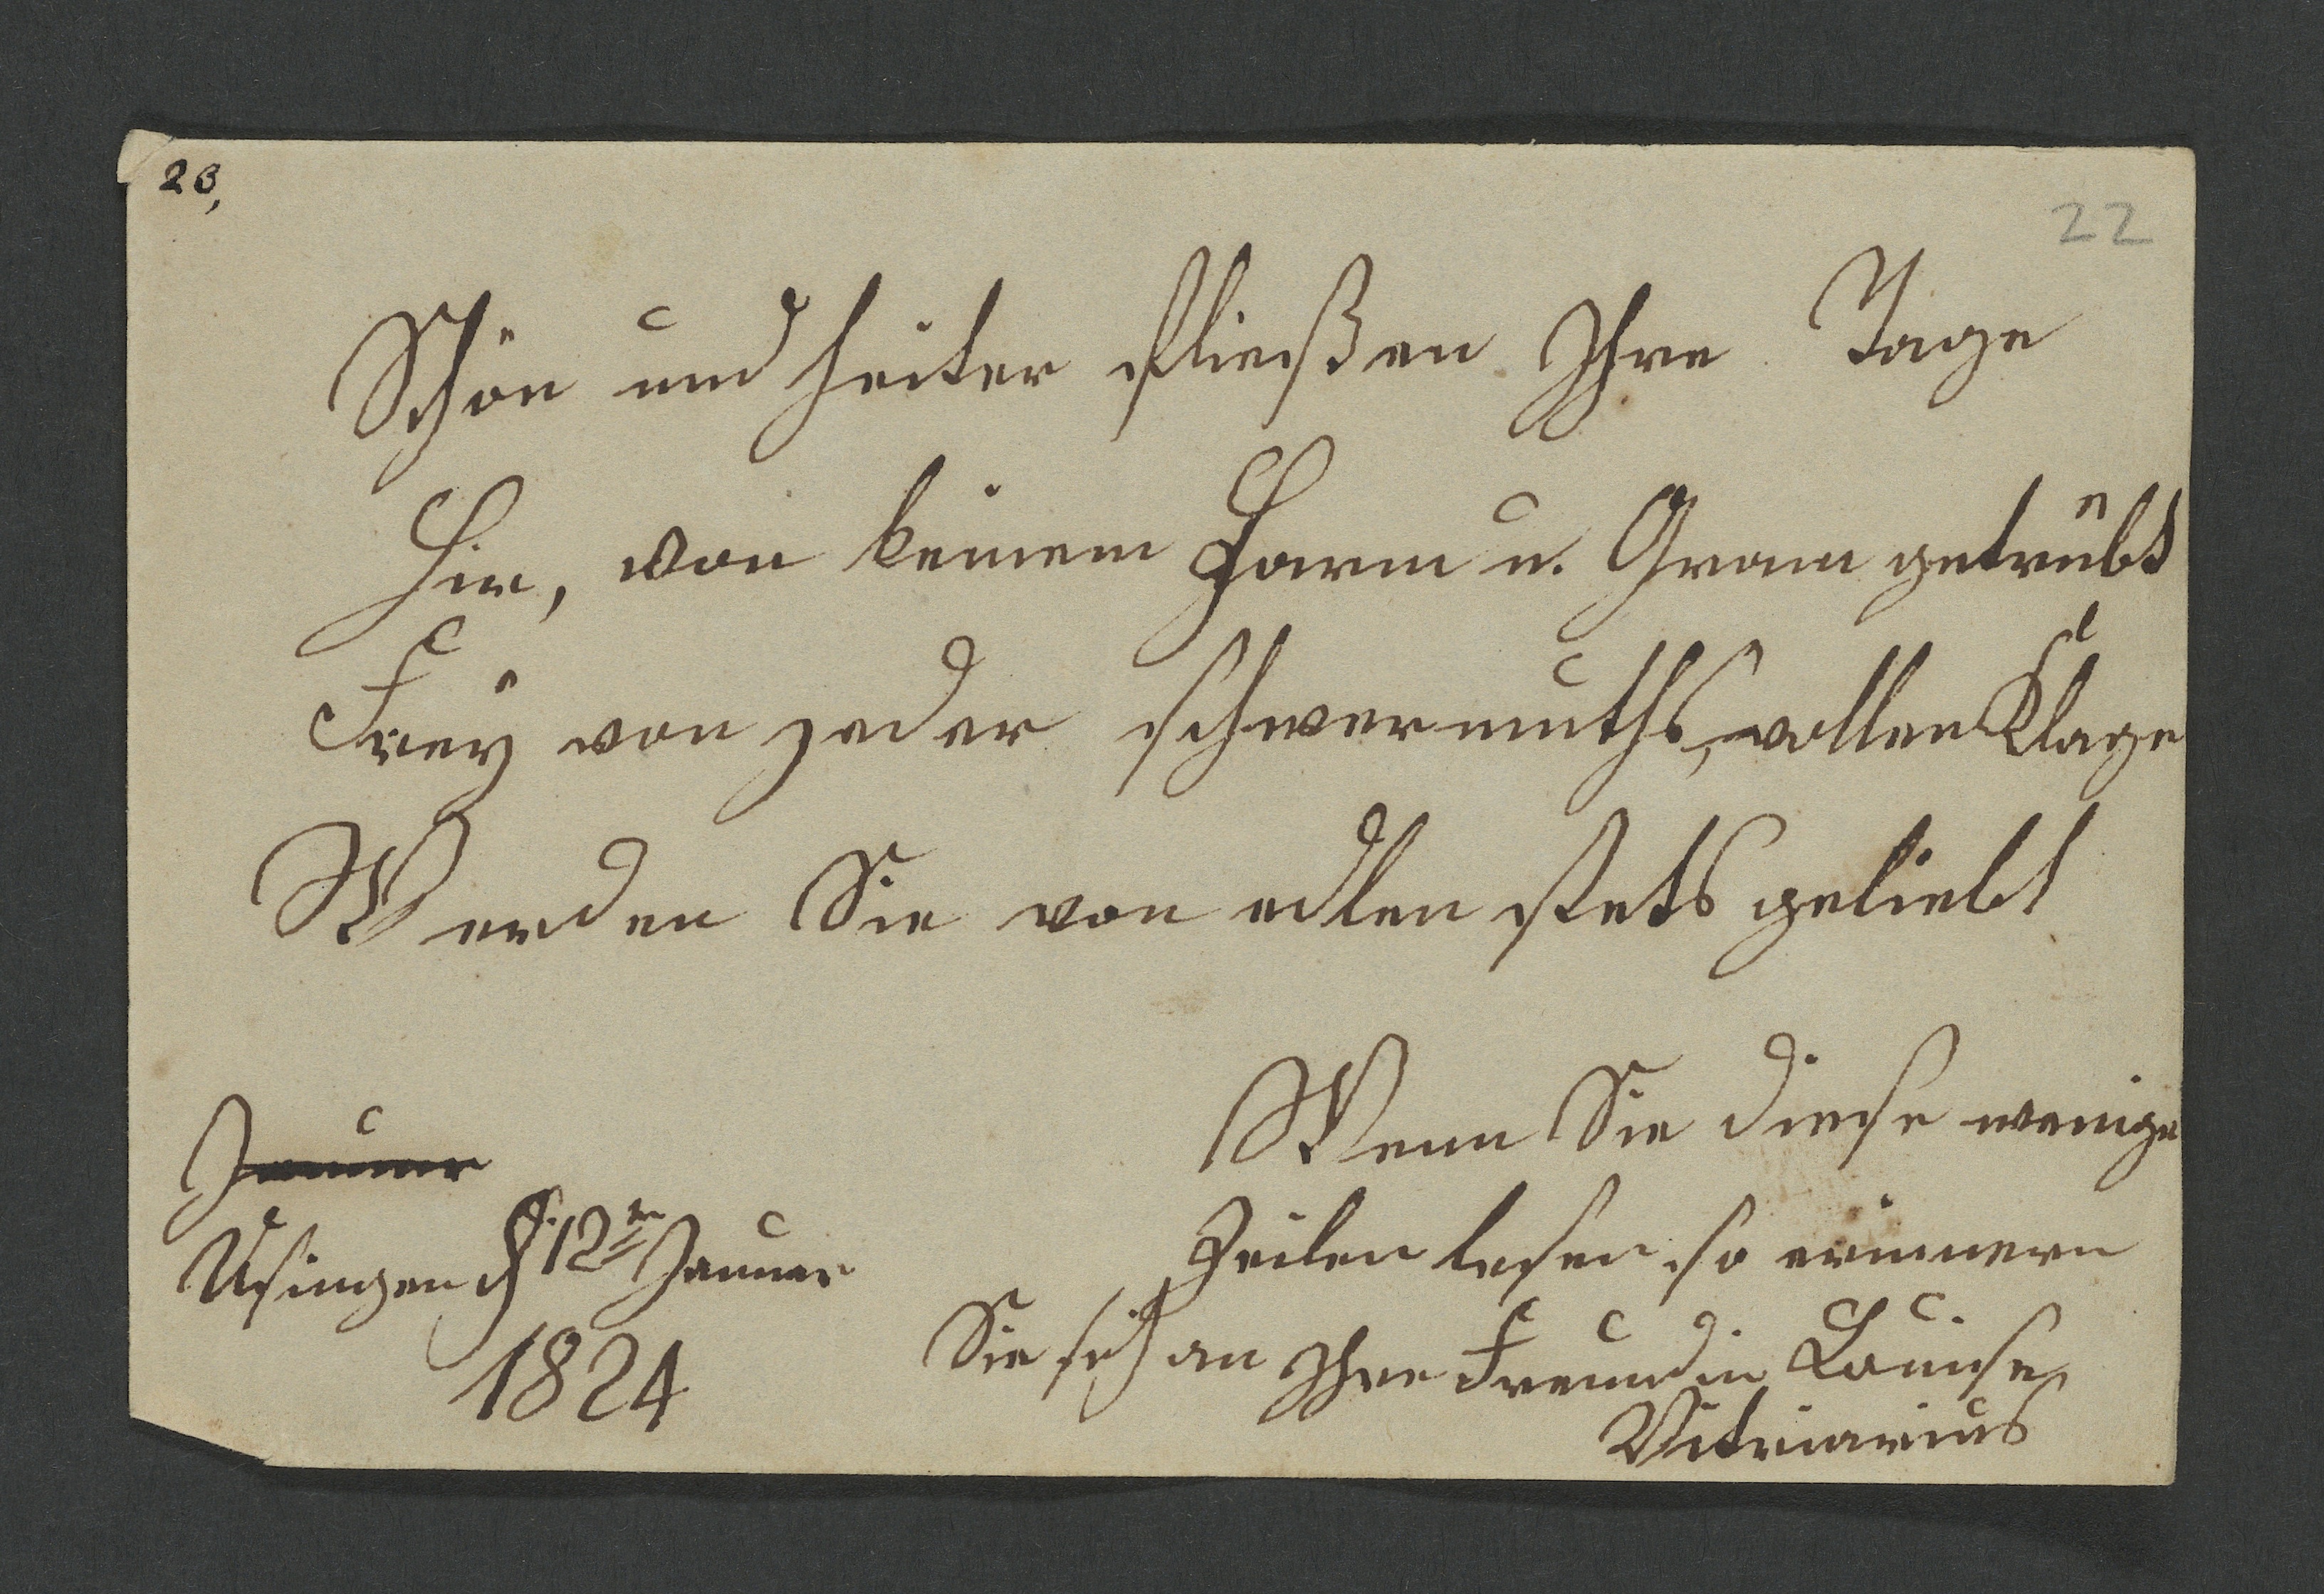 23,
22
Schön und heiter fließen Ihre Tage
Hin, von keinem Harm u. Gram getrübt
Freÿ von jeder schwermuths,vollen Klage
Werden Sie von edlen stets geliebt
Wenn Sie diese wenige
Zeilen lesen so erinnern
Sie sich an Ihre Freundin Louise
Vitriarius
Januar
Usingen d. 12ten Januar
1824